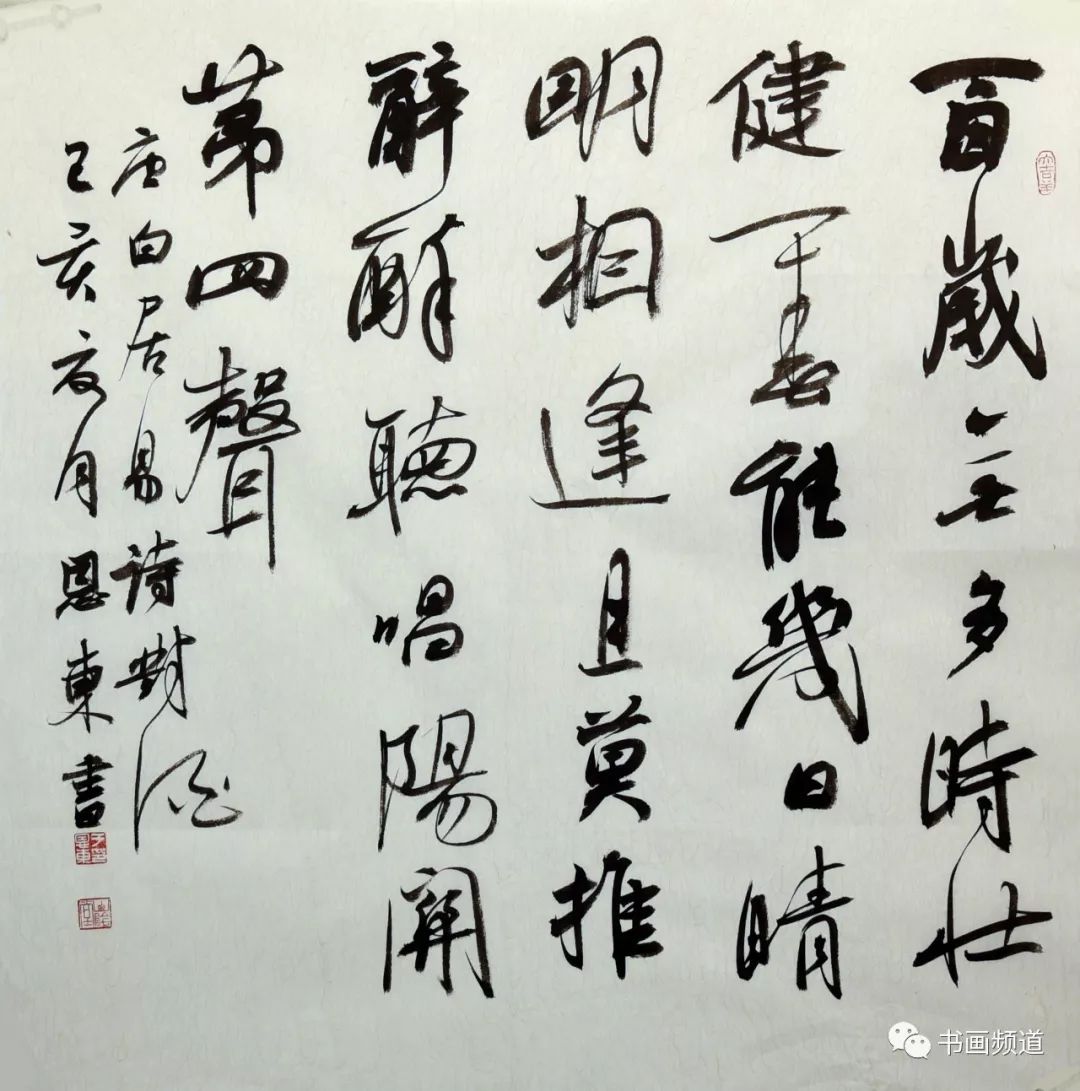 百歲無多時壯
健一春能幾日晴
明相逢且莫推
辭醉聽唱陽關
第四聲
唐白居易詩對酒
己亥夏月恩東書
书画频道